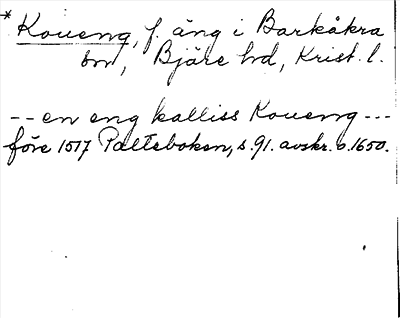 * Koueng, f. äng i Barkåkra
sn, Bjäre hd, Krist. l.
-- en eng kalliss Koueng ---
före 1517 Palteboken, s. 91. avskr. o. 1650.